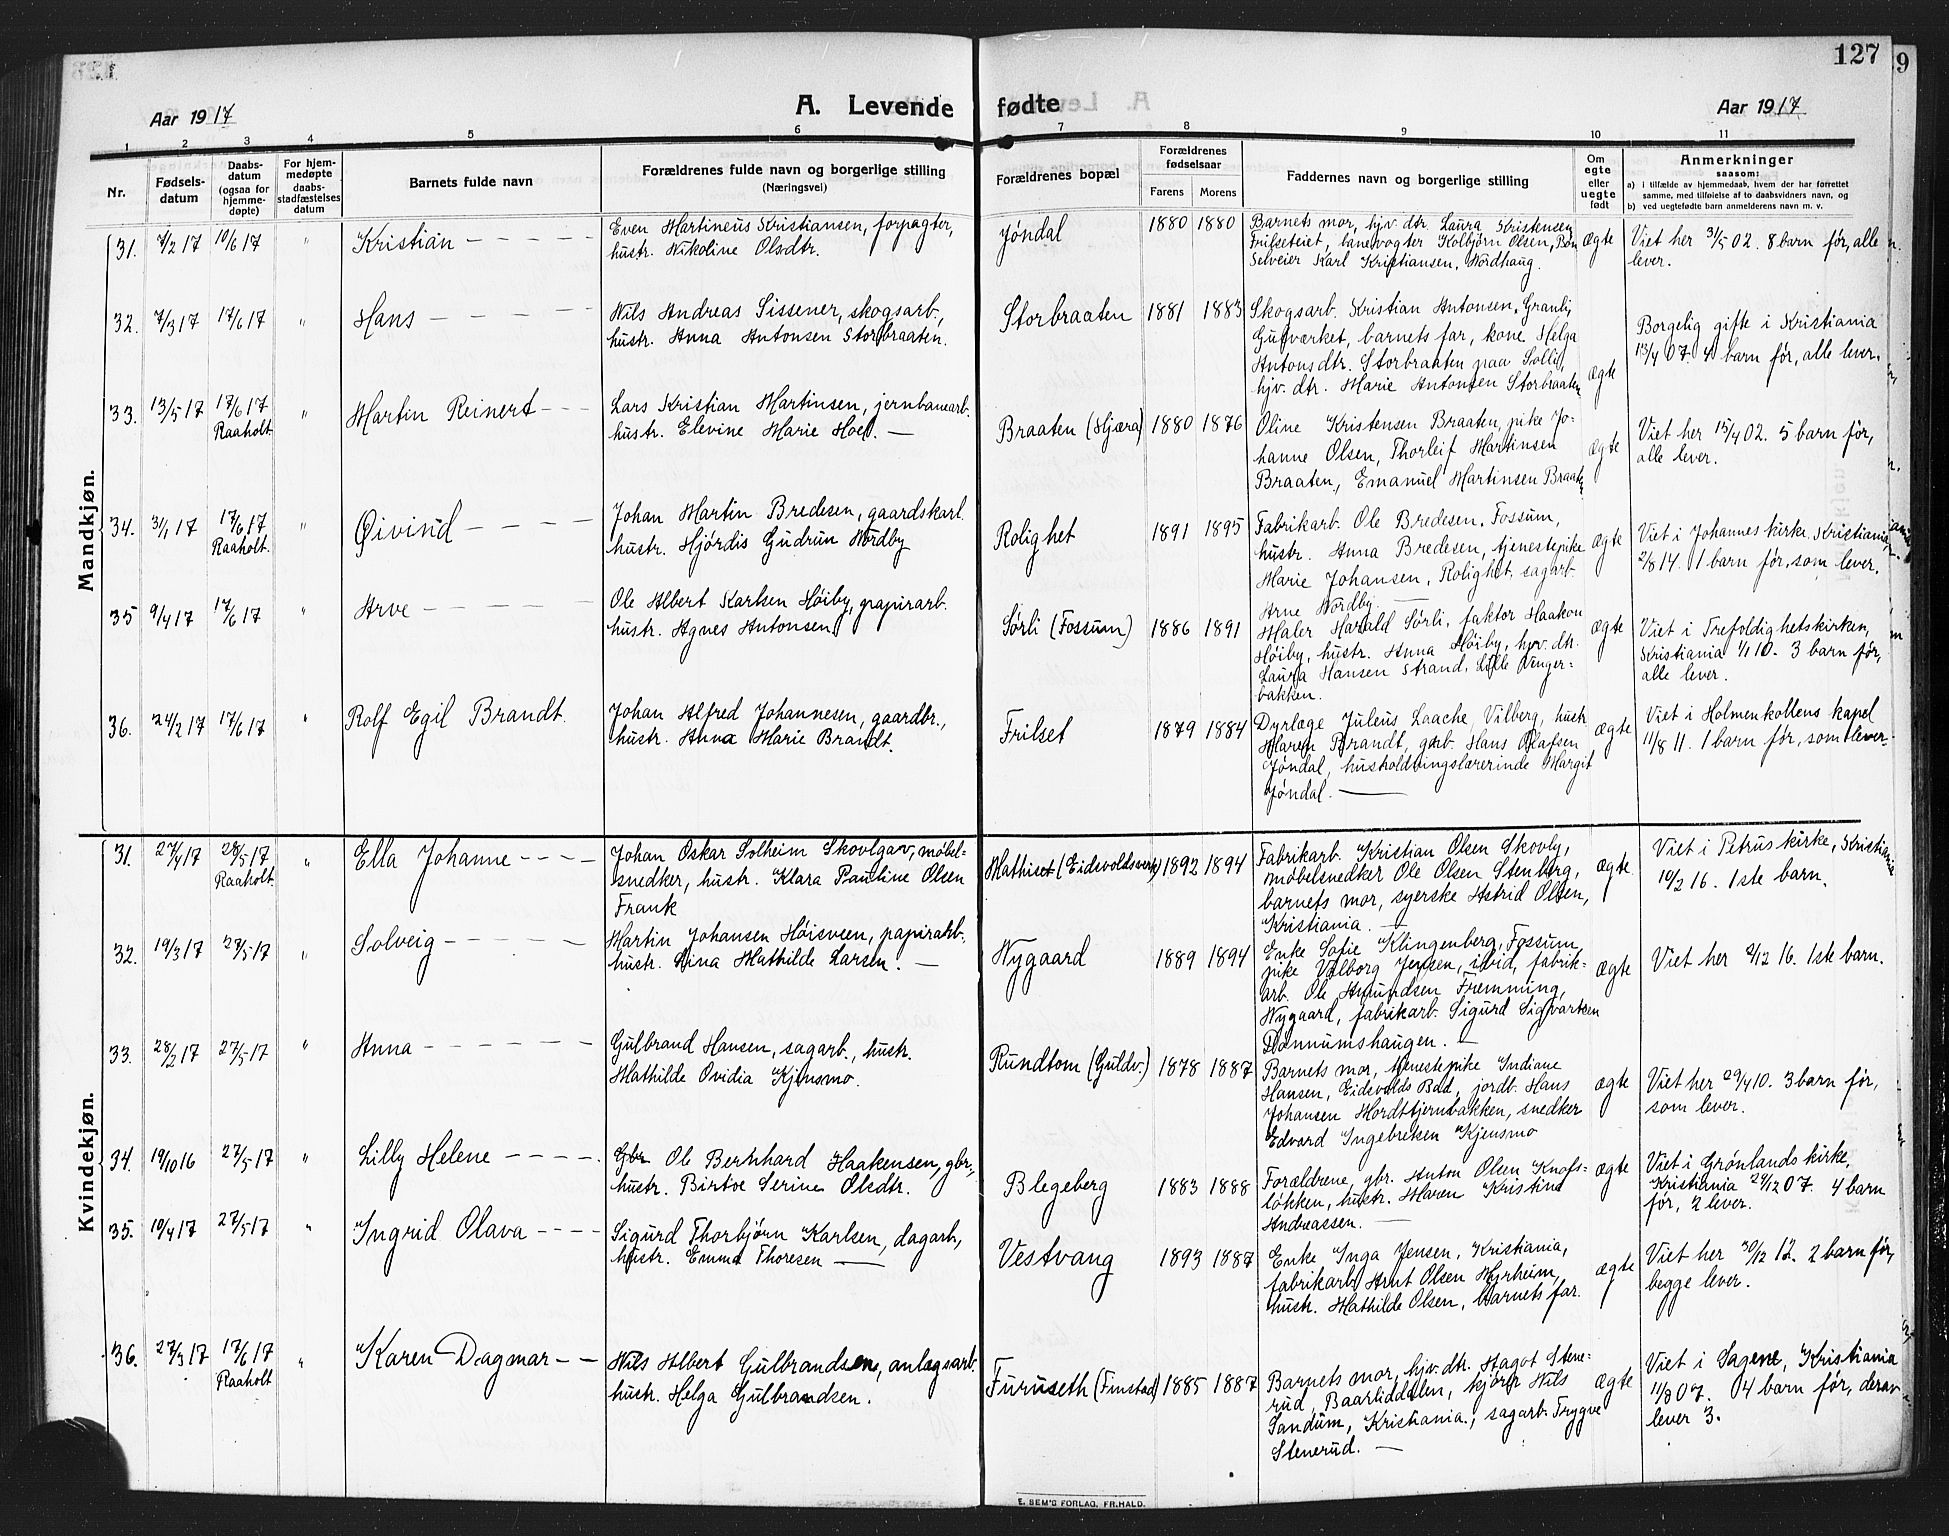 127
9
Aar 1917
A. Levende fødte
Aar 1917
1 2 3 4 5 6 7 8 9 10 11
Nr.
Fødsels-
datum
Daabs-
datum
(ogsaa for
hjemme-
døpte)
For hjem-
medøpte
daabs-
stadfæstelses
datum
Barnets fulde navn
Forældrenes fulde navn og borgerlige stilling
(Næringsvei)
Forældrenes bopæl
Forældrenes
fødselsaar
Farens Morens
Faddernes navn og borgerlige stilling
Om
egte
eller
uegte
født
Anmerkninger
saasom:
a) i tilfælde av hjemmedaab, hvem der har forrettet
samme, med tilføielse af to daabsvidners navn, og
b) ved uegtefødte barn anmelderens navn m. v.
Mandkjøn.
31. 4/2 17 10/6 17 " Kristian
Even Martineus Kristiansen, forpagter,
hustr. Nikoline Olsdtr.
Jøndal 1880 1880
Barnets mor, hjv. dtr. Laura Kristensen
Frilseteiet, banevogter Kolbjørn Olsen, Bøn
Selveier Karl Kristiansen, Nordhaug.
ægte
Viet her 31/5 02. 8 barn før, alle
lever.
32. 7/3 17 17/6 17 " Hans
Nils Andreas Sissener, skogsarb.,
hustr. Anna Antonsen Storbraaten.
Storbraaten 1881 1883
Skogsarb. Kristian Antonsen, Granli,
Gulværket, barnets far, kone Helga
Antonsdtr. Storbraaten paa Solli,
hjv. dtr. Marie Antonsen Storbraaten
ægte
Borgelig gifte i Kristiania
13/4 07. 4 barn før, alle lever.
33. 13/5 17 17/6 17
Raaholt " Martin Reinert
Lars Kristian Martinsen, jernbanearb.
hustr. Elevine Marie Hoel.
Braaten (Hjæra) 1880 1876
Oline Kristensen Braaten, pike Jo-
hanne Olsen, Thorleif Martinsen
Braaten, Emanuel Martinsen Braaten
ægte
Viet her 15/4 02. 5 barn før,
alle lever.
34. 3/1 17 17/6 17
Raaholt. " Øivind
Johan Martin Bredesen, gaardskarl.
hustr. Hjørdis Gudrun Nordby
Rolighet 1891 1895
Fabrikarb. Ole Bredesen, Fossum,
hustr. Anna Bredesen, tjenestepike
Marie Johansen, Rolighet, sagarb.
Arne Nordby
ægte
Viet i Johannes kirke. Kristiania,
2/8 14. 1 barn før, som lever.
35 9/4 17 17/6 17 " Arve
Ole Albert Karlsen Høiby, papirarb.
hustr. Agnes Antonsen
Sørli (Fossum) 1886 1891
Maler Harald Sørli, faktor Haakon
Høiby, hustr. Anna Høiby, hjv. dtr.
Laura Hansen Strand, Lille Unger-
bakken.
ægte
Viet i Trefoldighetskirken,
Kristiania 1/1 10. 3 barn før,
alle lever.
36. 24/2 17 17/6 17 " Rolf Egil Brandt.
Johan Alfred Johannesen, gaardbr.,
hustr. Anna Marie Brandt.
Frilset 1879 1884
Dyrlæge Juleus Laache, Vilberg, hustr
Maren Brandt, gårb. Hans Olafsen
Jøndal, husholdningslærerinde Margit
Jøndal.
ægte
Viet i Holmenkollens kapel
11/8 11. 1 barn før, som lever.
Kvindekjøn.
31. 27/4 17 28/5 17
Raaholt. " Ella Johanne
Johan Oskar Solheim Skovlgar, møbel-
snedker, hustr. Klara Pauline Olsen
Frank
Mathiset (Eidsvoldsverk) 1892 1894
Fabrikarb. Kristian Olsen Skovby,
møbelsnedker Ole Olsen Stenberg,
barnets mor, syerske Astrid Olsen,
Kristiania.
ægte
Viet i Petrus kirke, Kristiania
10/2 16. 1ste barn.
32. 19/3 17 27/5 17 " Solveig
Martin Johansen Høisveen, papirarb.
hustr. Lina Mathilde Larsen.
Nygaard 1889 1894
Enke Sofie Klingenberg, Fossum,
pike Valborg Jensen, ibid, fabrik-
arb. Ole Amundsen Fremming,
Nygaard, fabrikarb. Sigurd Sigvartsen
Dønnumshaugen.
ægte
Viet her 2/12 16. 1ste barn.
33. 28/2 17 27/5 17 " Anna
Gulbrand Hansen, sagarb., hustr.
Mathilde Ovidia Kjensmo.
Rundtom (Guldv.) 1878 1887
Barnets mor, tjenestepike Indiane
Hansen, Eidsvolds Bad, jordb. Hans
Johansen Mordttjernbakken, snedker
Edvard Ingebretsen Kjensmo
ægte
Viet her 29/4 10. 3 barn før,
som lever.
34. 19/10 16 27/5 17 " Lilly Helene
Gbr Ole Bernhard Haakensen, gbr.,
hustr. Birthe Serine Olsdtr.
Blegeberg 1883 1888
Forældrene, gbr. Anton Olsen Knofs-
løkken, hustr. Maren Kristine
Andreassen.
ægte
Viet i Grønlands kirke,
Kristiania 29/12 07. 4 barn
før, 2 lever.
35. 10/4 17 27/5 17 " Ingrid Olava
Sigurd Thorbjørn Karlsen, dagarb,
hustr. Emma Thoresen
Vestvang 1893 1887
Enke Inga Jensen, Kristiania,
fabrikarb. Amt Olsen Myrheim,
hustr. Mathilde Olsen, barnets far.
ægte
Viet her 30/12 12. 2 barn før,
begge lever.
36. 27/3 17 17/6 17
Raaholt " Karen Dagmar
Nils Albert Gulbrandsen, anlægsarb.
hustr. Helga Gulbrandsen.
Furuseth (Finstad) 1885 1887
Barnets mor, hjv. dtr. Hagot Stene-
rud, Baarliddalen, kjører Nils
Sandum, Kristiania, sagarb. Trygve
Stenerud.
ægte
Viet i Sagene, Kristiania
11/8 07. 4 barn før, derav
lever 3.
E. SEM'S FORLAG, FR.HALD.